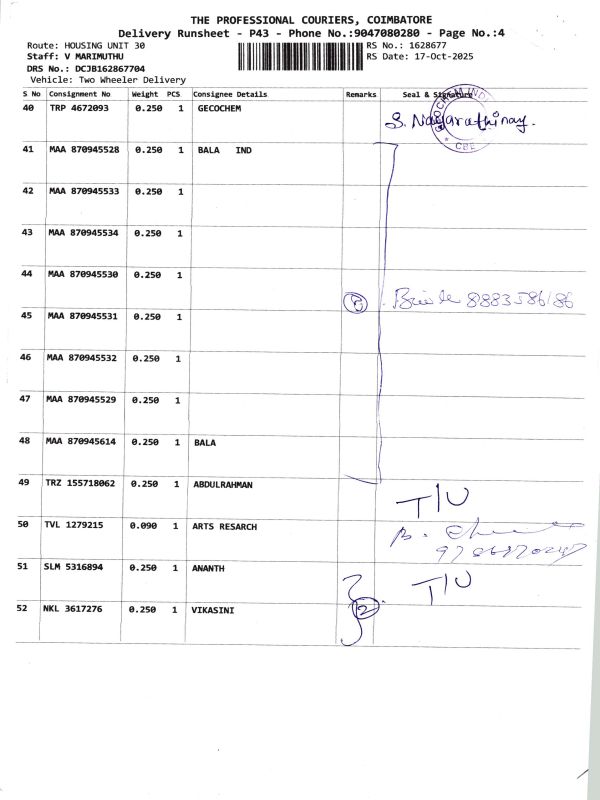 THE PROFESSIONAL COURIERS, COIMBATORE
Delivery Runsheet - P43 - Phone No.:9047080280 - Page No.:4
Route: HOUSING UNIT 30 RS No.: 1628677
Staff: V MARIMUTHU RS Date: 17-Oct-2025
DRS No.: DCJB162867704
Vehicle: Two Wheeler Delivery
S No Consignment No Weight PCS Consignee Details Remarks Seal & Signature
40 TRP 4672093 0.250 1 GECOCHEM
S. Nagarathinay.
CBE
41 MAA 870945528 0.250 1 BALA IND
42 MAA 870945533 0.250 1
43 MAA 870945534 0.250 1
44 MAA 870945530 0.250 1
8 8883586186
45 MAA 870945531 0.250 1
46 MAA 870945532 0.250 1
47 MAA 870945529 0.250 1
48 MAA 870945614 0.250 1 BALA
49 TRZ 155718062 0.250 1 ABDULRAHMAN
T/U
50 TVL 1279215 0.090 1 ARTS RESARCH
51 SLM 5316894 0.250 1 ANANTH
T/U
52 NKL 3617276 0.250 1 VIKASINI
2